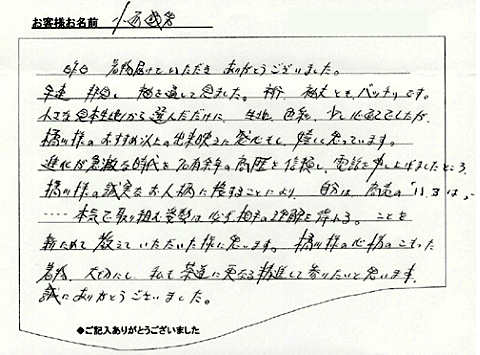 お客様お名前 小西
昨日 着物届けていただき ありがとうございました。
早速 拝見し 袖を通して見ました。裄 裄丈とも、バッチリです。
小さな見本生地から選んだだけに、生地、色彩、少し心配でしたが、
橋川様のおすすめ以上の出来映えに 安心もし 嬉しく思っています。
進化が急激な時代を 百有余年の商歴を信頼し、電話を申し上げましたところ、
橋川様の誠実なお人柄に接することにより 自分は 商売の「いろは」
本気で取り組む姿勢は 必ず相手の理解を得れる。ことを
新ためて 教えていただいた様に思います。橋川様の心持のこもった
着物、大切にし、私も 茶道に更なる精進して参りたいと思います。
誠にありがとうございました。
●ご記入ありがとうございました